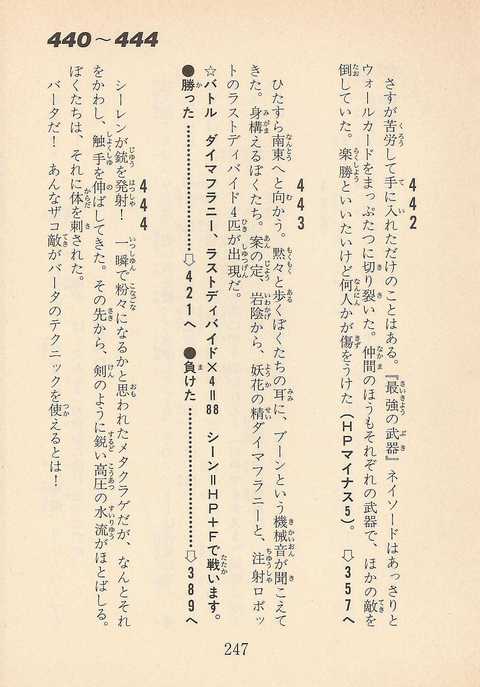 440〜444
442
さすが苦労して手に入れただけのことはある。『最強の武器』ネイソードはあっさりと
ウォールカードをまっぷたつに切り裂いた。仲間のほうもそれぞれの武器で、ほかの敵を
倒していた。楽勝といいたいけど何人かが傷をうけた（HPマイナス5）。⇨357へ
443
ひたすら南東へと向かう。黙々と歩くぼくたちの耳に、ブーンという機械音が聞こえて
きた。身構えるぼくたち。案の定、岩陰から、妖花の精ダイマフラニーと、注射ロボッ
トのラストディバイド4匹が出現だ。
☆バトル　ダイマフラニー、ラストディバイド×4＝88　シーン＝HP＋Fで戦います。
●勝った………………⇨421へ　●負けた………………⇨389へ
444
シーレンが銃を発射！　一瞬で粉々になるかと思われたメタクラゲだが、なんとそれ
をかわし、触手を伸ばしてきた。その先から、剣のように鋭い高圧の水流がほとばしる。
ぼくたちは、それに体を刺された。
バータだ！　あんなザコ敵がバータのテクニックを使えるとは！
247